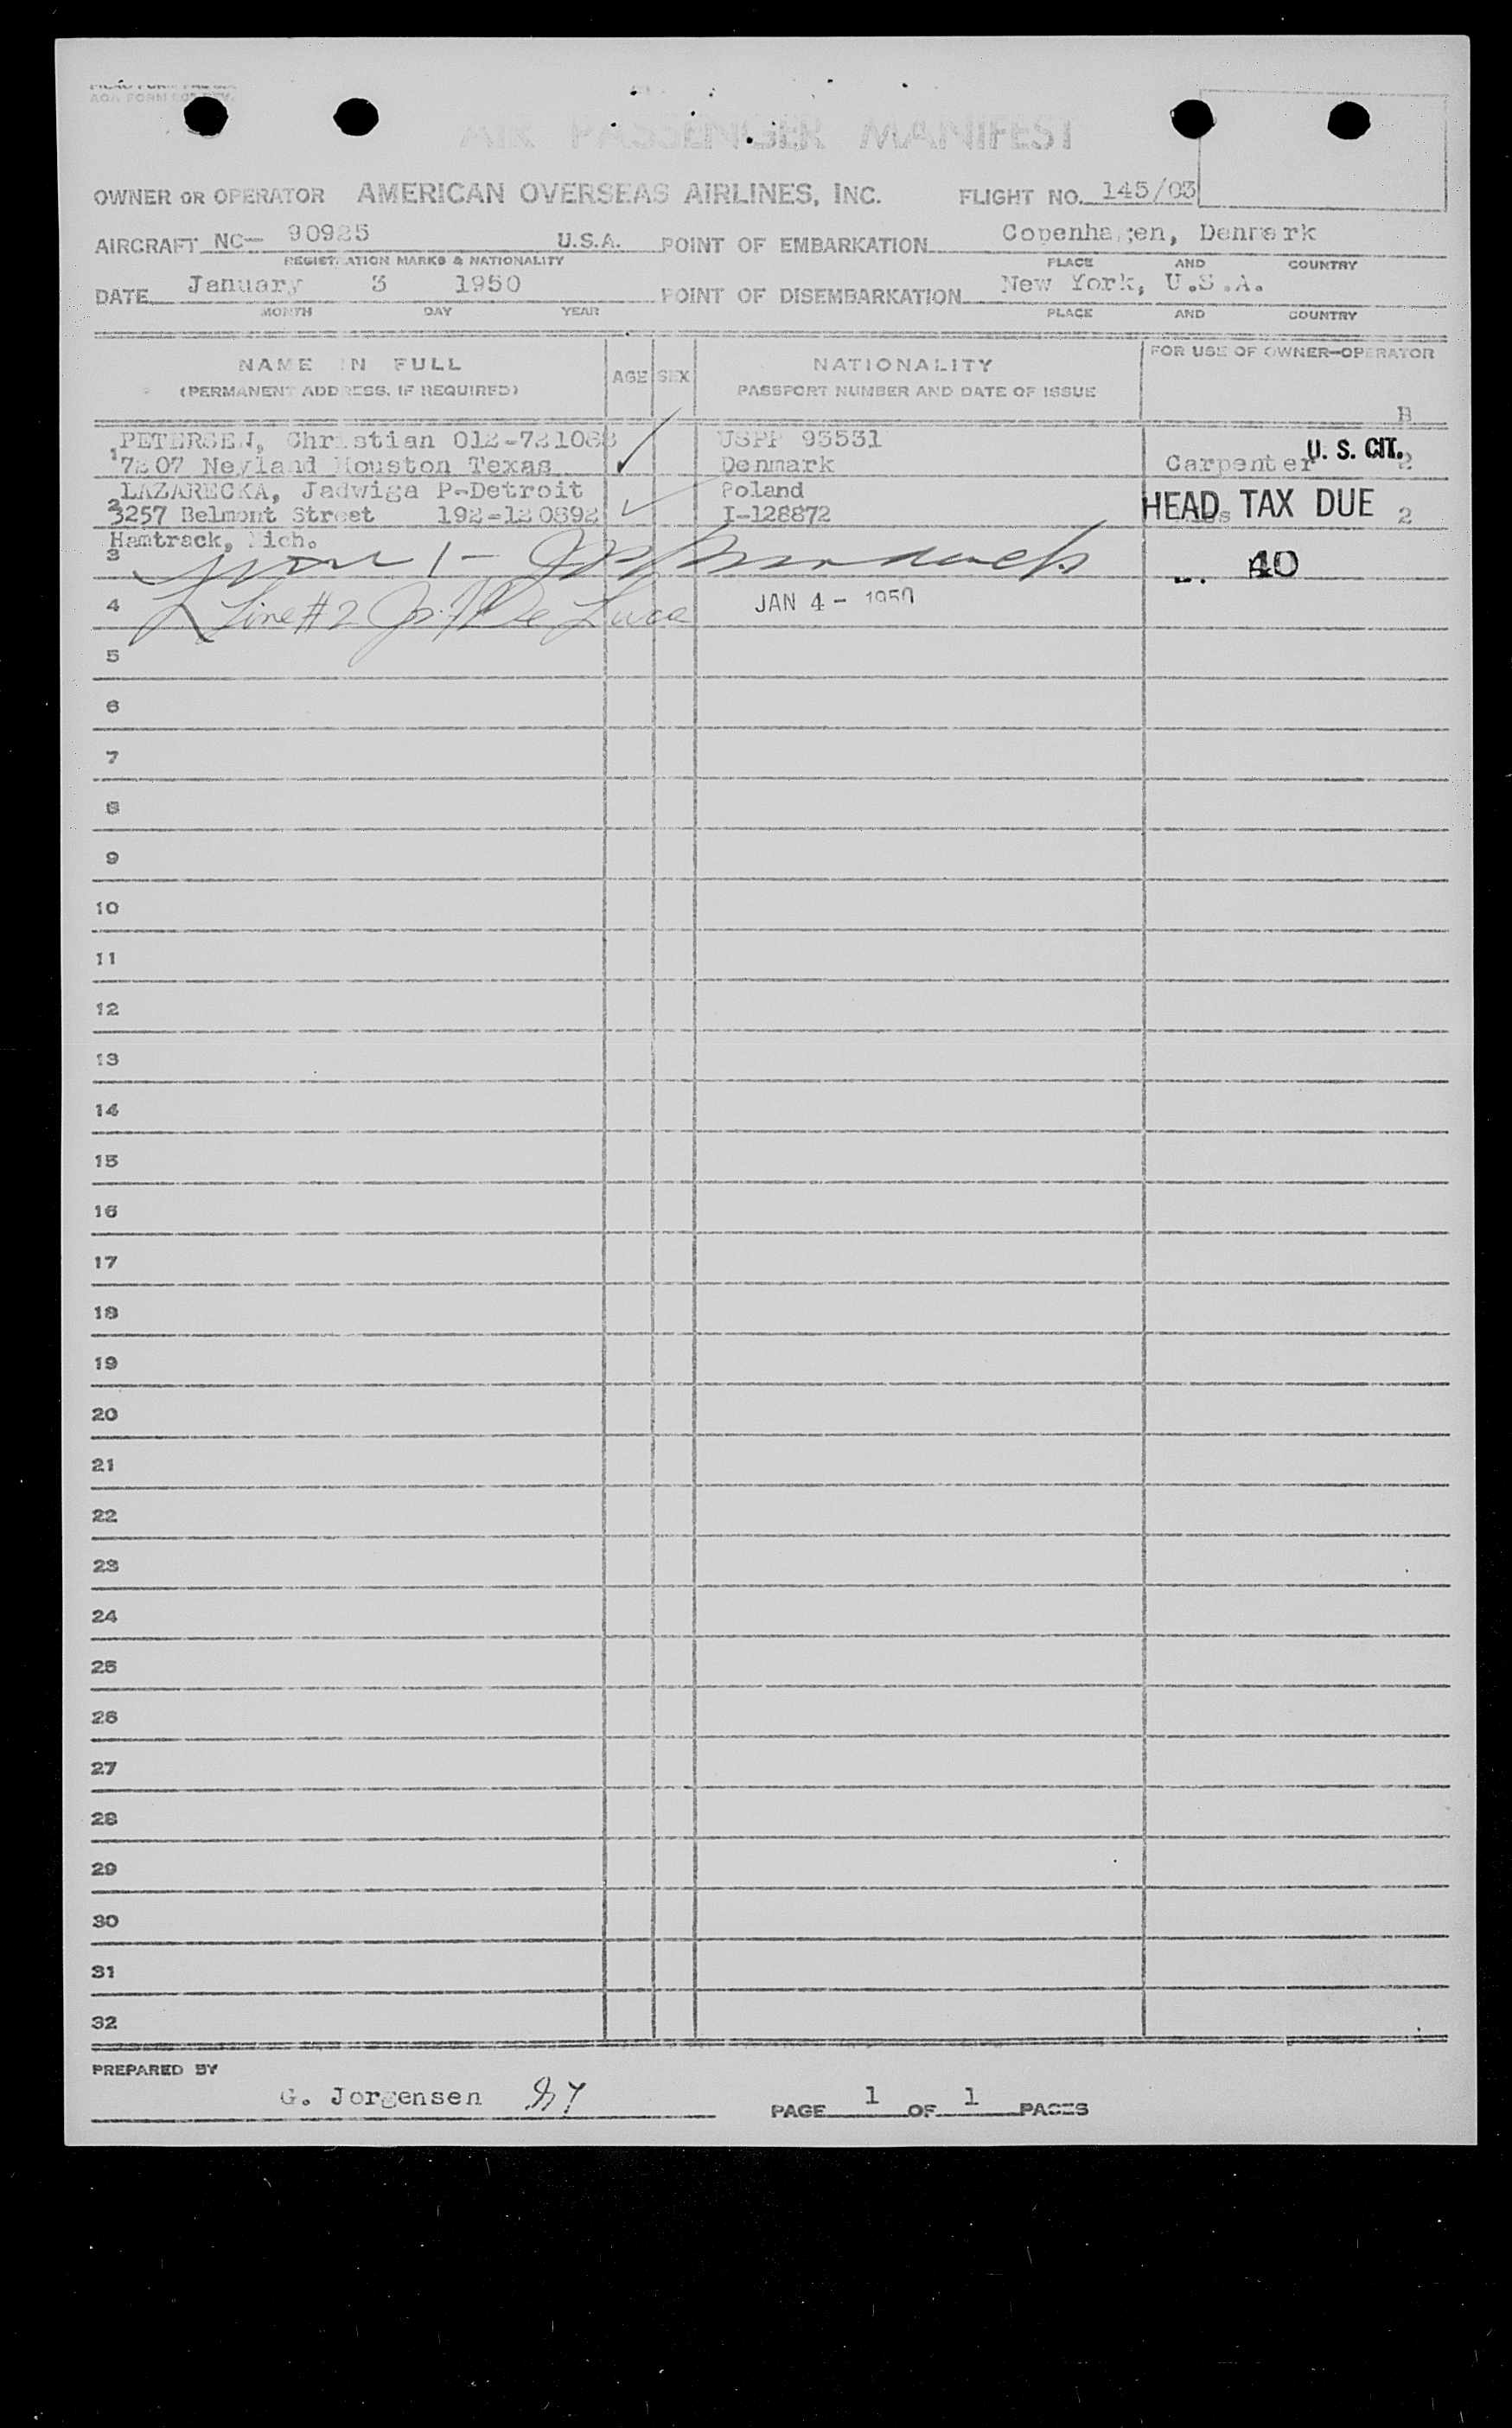 AIR PASSENGER MANIFEST
OWNER OR OPERATOR AMERICAN OVERSEAS AIRLINES, INC. FLIGHT NO. 145/03
AIRCRAFT NC- 90925 U.S.A. POINT OF EMBARKATION Copenhagen, Denmark
REGISTRATION MARKS & NATIONALITY PLACE AND COUNTRY
DATE January 3 1950 POINT OF DISEMBARKATION New York, U.S.A.
MONTH DAY YEAR PLACE AND COUNTRY
NAME IN FULL AGE SEX NATIONALITY FOR USE OF OWNER-OPERATOR
(PERMANENT ADDRESS, IF REQUIRED) PASSPORT NUMBER AND DATE OF ISSUE
B
PETERSEN, Christian USPP 93531 U. S. CIT.
1 Houston Texas Denmark Carpenter 2
LAZARECKA, Jadwiga P-Detroit Poland HEAD TAX DUE
2 3257 Belmont Street I-128872 2
Hamtrack, Mich.
3 40
4 Line #2 De Luca JAN 4 - 1950
5
6
7
8
9
10
11
12
13
14
15
16
17
18
19
20
21
22
23
24
25
26
27
28
29
30
31
32
PREPARED BY
G. Jorgensen PAGE 1 OF 1 PAGES